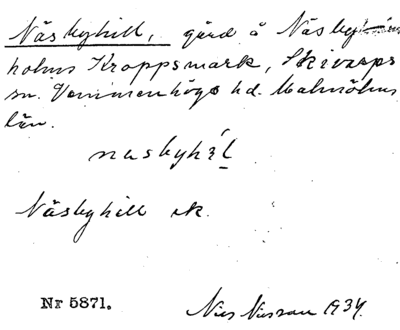 Näsbyhill, gård å Näsby-
holms Kroppsmark, Skivarps
sn. Vemmenhögs hd. Malmöhus
län.
nasbyhɪl
Näsbyhill ek.
Nr 5871.
Nils Nilsson 1934.